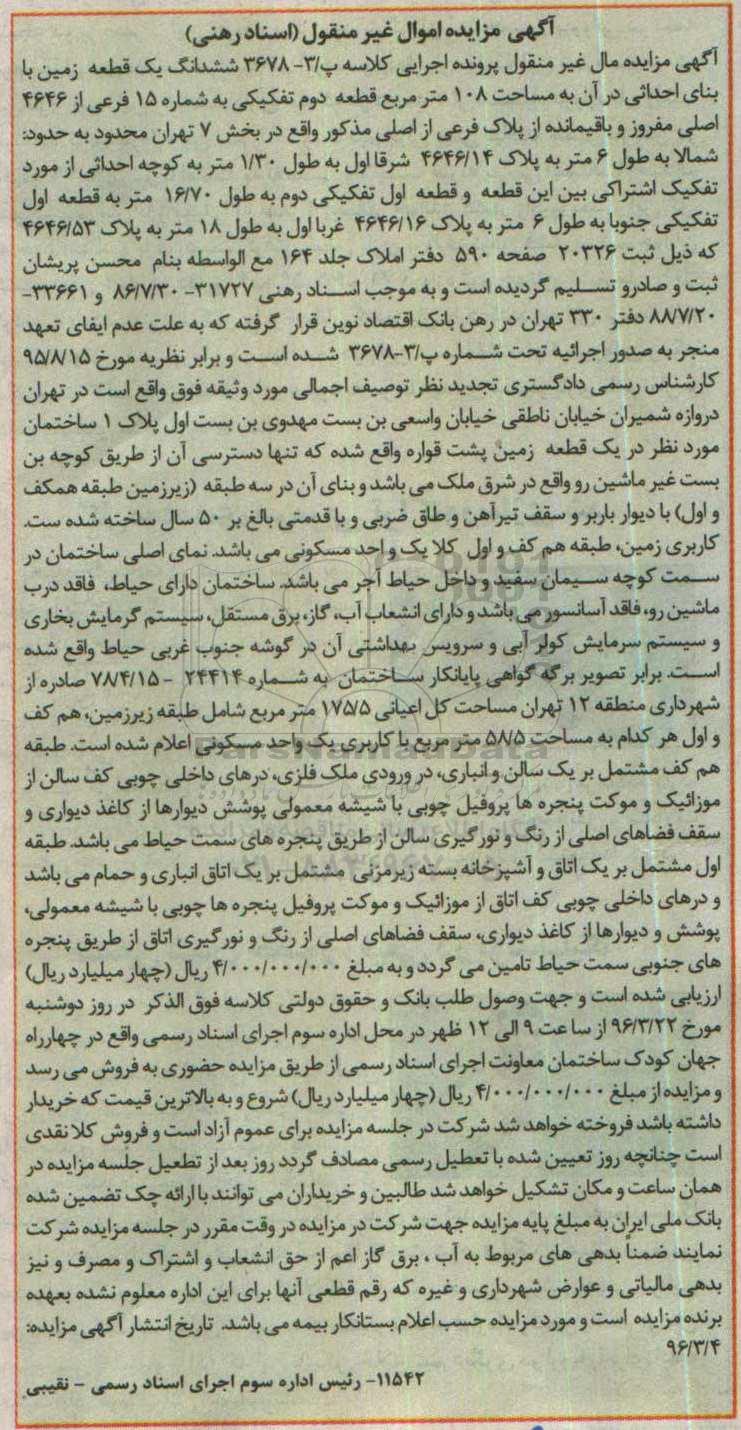 آگهی مزایده اموال غیر منقول (اسناد رهنی)
آگهی مزایده مال غیر منقول پرونده اجرایی کلاسه پ/۳- ۳۶۷۸ ششدانگ یک قطعه زمین با
بنای احداثی در آن به مساحت ۱۰۸ متر مربع قطعه دوم تفکیکی به شماره ۱۵ فرعی از ۴۶۴۶
اصلی مفروز و باقیمانده از پلاک فرعی از اصلی مذکور واقع در بخش ۷ تهران محدود به حدود:
شمالا به طول ۶ متر به پلاک ۴۶۴۶/۱۴ شرقا اول به طول ۱/۳۰ متر به کوچه احداثی از مورد
تفکیک اشتراکی بین این قطعه و قطعه اول تفکیکی دوم به طول ۱۶/۷۰ متر به قطعه اول
تفکیکی جنوبا به طول ۶ متر به پلاک ۴۶۴۶/۱۶ غربا اول به طول ۱۸ متر به پلاک ۴۶۴۶/۵۳
که ذیل ثبت ۲۰۳۲۶ صفحه ۵۹۰ دفتر املاک جلد ۱۶۴ مع الواسطه بنام محسن پریشان
ثبت و صادرو تسلیم گردیده است و به موجب اسناد رهنی ۳۱۷۲۷- ۸۶/۷/۳۰ و ۳۳۶۶۱-
۸۸/۷/۲۰ دفتر ۳۳۰ تهران در رهن بانک اقتصاد نوین قرار گرفته که به علت عدم ایفای تعهد
منجر به صدور اجرائیه تحت شماره پ/۳-۳۶۷۸ شده است و برابر نظریه مورخ ۹۵/۸/۱۵
کارشناس رسمی دادگستری تجدید نظر توصیف اجمالی مورد وثیقه فوق واقع است در تهران
دروازه شمیران خیابان ناطقی خیابان واسعی بن بست مهدوی بن بست اول پلاک ۱ ساختمان
مورد نظر در یک قطعه زمین پشت قواره واقع شده که تنها دسترسی آن از طریق کوچه بن
بست غیر ماشین رو واقع در شرق ملک می باشد و بنای آن در سه طبقه (زیرزمین طبقه همکف
و اول) با دیوار باربر و سقف تیرآهن و طاق ضربی و با قدمتی بالغ بر ۵۰ سال ساخته شده ست.
کاربری زمین، طبقه هم کف و اول کلا یک و احد مسکونی می باشد. نمای اصلی ساختمان در
سمت کوچه سیمان سفید و داخل حیاط آجر می باشد. ساختمان دارای حیاط، فاقد درب
ماشین رو، فاقد آسانسور می باشد و دارای انشعاب آب، گاز، برق مستقل، سیستم گرمایش بخاری
و سیستم سرمایش کولر آبی و سرویس بهداشتی آن در گوشه جنوب غربی حیاط واقع شده
است. برابر تصویر برگه گواهی پایانکار ساختمان به شماره ۲۴۴۱۴ - ۷۸/۴/۱۵ صادره از
شهرداری منطقه ۱۲ تهران مساحت کل اعیانی ۱۷۵/۵ متر مربع شامل طبقه زیرزمین، هم کف
و اول هر کدام به مساحت ۵۸/۵ متر مربع با کاربری یک واحد مسکونی اعلام شده است. طبقه
هم کف مشتمل بر یک سالن و انباری، در ورودی ملک فلزی، درهای داخلی چوبی کف سالن از
موزائیک و موکت پنجره ها پروفیل چوبی با شیشه معمولی پوشش دیوارها از کاغذ دیواری و
سقف فضاهای اصلی از رنگ و نور گیری سالن از طریق پنجره های سمت حیاط می باشد. طبقه
اول مشتمل بر یک اتاق و آشپزخانه بسته زیرمزنی مشتمل بر یک اتاق انباری و حمام می باشد
و درهای داخلی چوبی کف اتاق از موزائیک و موکت پروفیل پنجره ها چوبی با شیشه معمولی،
پوشش و دیوارها از کاغذ دیواری، سقف فضاهای اصلی از رنگ و نور گیری اتاق از طریق پنجره
های جنوبی سمت حیاط تامین می گردد و به مبلغ ۴/۰۰۰/۰۰۰/۰۰۰ ریال (چهار میلیارد ریال)
ارزیابی شده است و جهت وصول طلب بانک و حقوق دولتی کلاسه فوق الذکر در روز دوشنبه
مورخ ۹۶/۳/۲۲ از سا عت ۹ الی ۱۲ ظهر در محل اداره سوم اجرای اسناد رسمی واقع در چهارراه
جهان کودک ساختمان معاونت اجرای اسناد رسمی از طریق مزایده حضوری به فروش می رسد
و مزایده از مبلغ ۴/۰۰۰/۰۰۰/۰۰۰ ریال (چهار میلیارد ریال) شروع و به بالاترین قیمت که خریدار
داشته باشد فروخته خواهد شد شرکت در جلسه مزایده برای عموم آزاد است و فروش کلا نقدی
است چنانچه روز تعیین شده با تعطیل رسمی مصادف گردد روز بعد از تطعیل جلسه مزایده در
همان ساعت و مکان تشکیل خواهد شد طالبین و خریداران می توانند با ارائه چک تضمین شده
بانک ملی ایران به مبلغ پایه مزایده جهت شرکت در مزایده در وقت مقرر در جلسه مزایده شرکت
نمایند ضمناً بدهی های مربوط به آب ، برق گاز اعم از حق انشعاب و اشتراک و مصرف و نیز
بدهی مالیاتی و عوارض شهرداری و غیره که رقم قطعی آنها برای این اداره معلوم نشده بعهده
برنده مزایده است و مورد مزایده حسب اعلام بستانکار بیمه می باشد. تاریخ انتشار آگهی مزایده:
۹۶/۳/۴
۱۱۵۴۲- رئیس اداره سوم اجرای اسناد رسمی - نقیبی